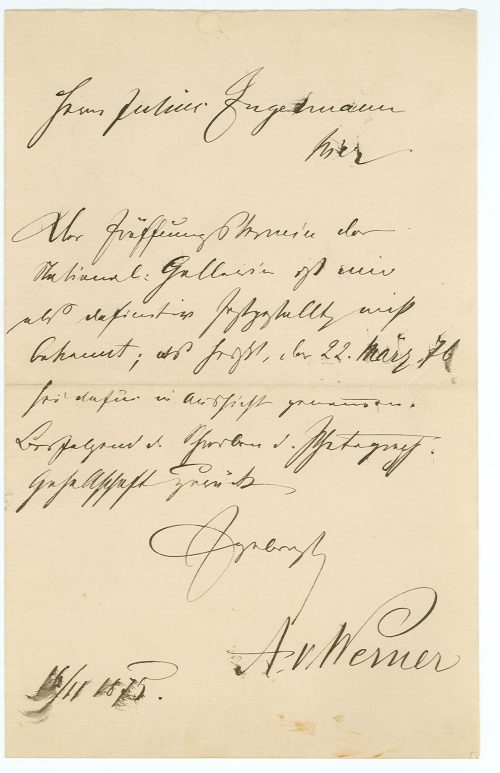 Herrn Julius Engelmann
hier
Der Eröffnungstermin der
National-Gallerie ist mir
als definitiv festgestellt nicht
bekannt; es heißt, der 22. März 76
sei dafür in Aussicht genommen.
Beifolgend d. Schreiben d. Photograph.
Gesellschaft zurück
Ergebenst
A. v. Werner
/11 1875.